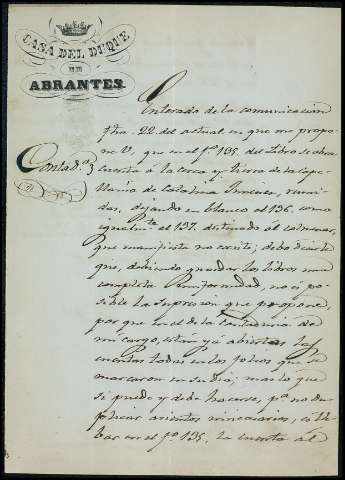 CASA DEL DUQUE
DE
ABRANTES.
Contad.ª
Enterado de la comunicacion
fha. 22 del actual en que me propo-
ne V. que en el f.º 135. del Libro se abra
cuenta á la cerca y tierra de la Cape-
llania de Catalina Jimenez, reuni-
das, dejando en blanco el 136. como
igualm.te el 137. destinado al colmenar,
que manifiesta no existe; debo decirle
que, debiendo guardar los libros una
completa uniformidad, no és po-
sible la supresion que propone,
por que en el de la Contaduria de
mi cargo, están yá abiertas las
cuentas todas en los folios que se
marcaron en su dia; mas lo que
si puede y debe hacerse, p.ª no du-
plicar asientos innecesarios, es lle-
bar en el f.º 135. la cuenta al